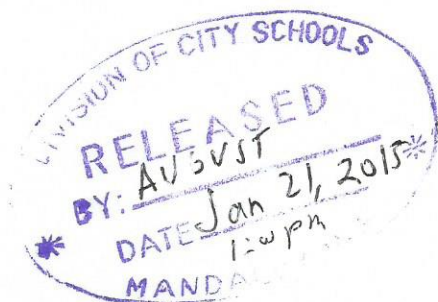 DIVISION OF CITY SCHOOLS
RELEASED
BY: AUGUST
DATE Jan 21, 2015
pm